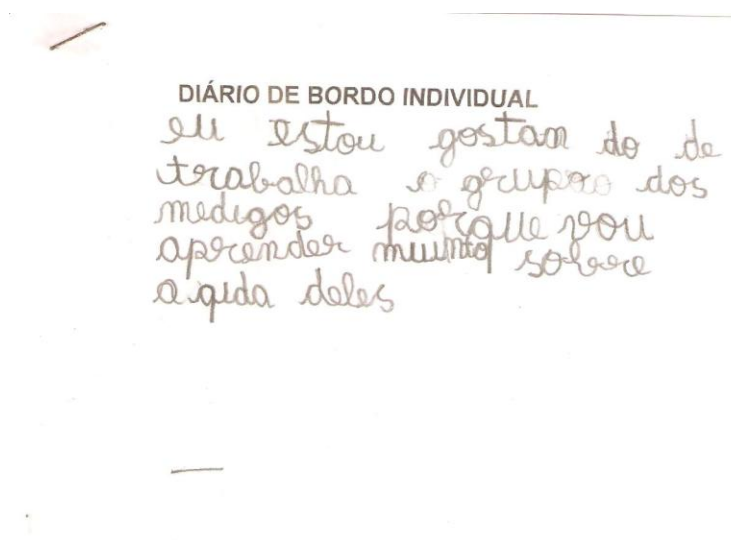 DIÁRIO DE BORDO INDIVIDUAL
eu estou gostan do de
trabalha o grupo dos
medigos porque vou
aprender muinto sobre
a quda deles